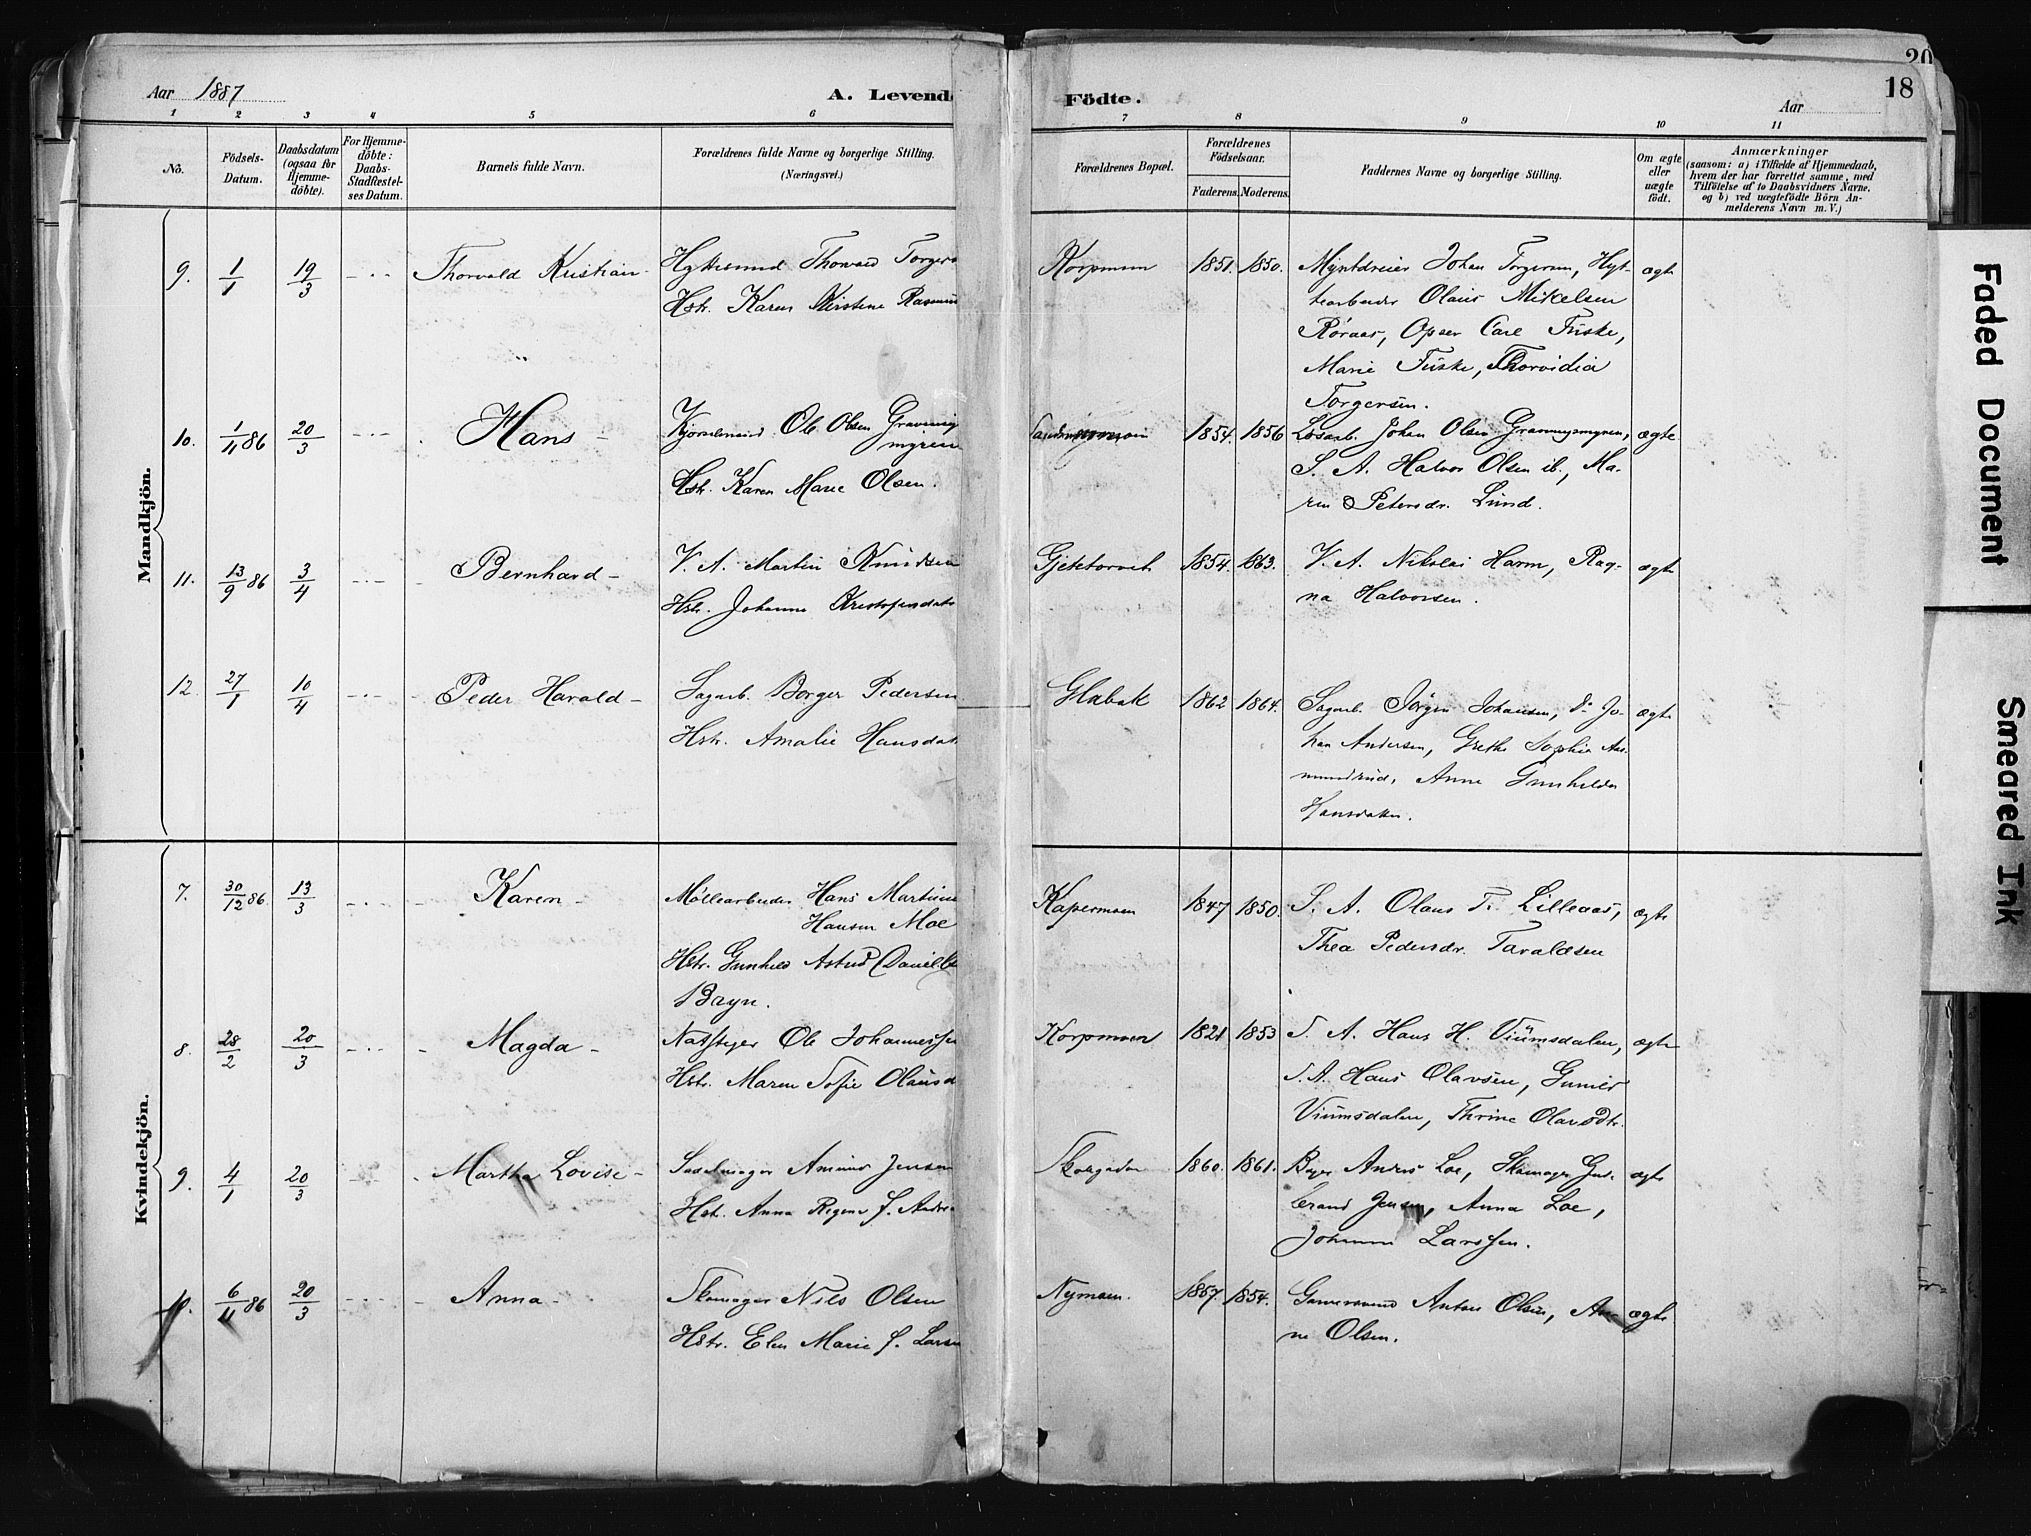 Aar 1887
A. Levende
Födte.
Aar
20
18
1 2 3 4 5 6 7 8 9 10 11
No.
Födsels-
Datum.
Daabsdatum
(ogsaa för
Hjemme-
döbte).
For Hjemme-
döbte:
Daabs-
Stadfæstel-
ses Datum.
Barnets fulde Navn.
Forældrenes fulde Navne og borgerlige Stilling.
(Næringsvei.)
Forældrenes Bopæl.
Forældrenes
Födselsaar.
Faderens. Moderens.
Faddernes Navne og borgerlige Stilling.
Om ægte
eller
uægte
födt.
Anmærkninger
(saasom: a) i Tilfælde af Hjemmedaab,
hvem der har forrettet samme, med
Tilföielse af to Daabsvidners Navne.
og b) ved uægtefödte Börn An-
melderens Navn m. V.)
Mandkjön.
9. 1/1 19/3 Thorvald Kristian Thorvald
Hstr. Karen Kirstine
Korpmoen 1851. 1850. Johan Torgersen, Hyt- ægte
tearbeider Olaus Mikelsen
Røraas, Opser Carl Fuske,
Marie Fuske, Thorvidia
Torgersen.
10. 1/11 86 20/3 Hans Ole Olsen Gravnings
myren
Hstr. Karen Marie Olsen.
1854. 1856 Løsarb. Johan Olsen Gravningsmyren, ægte
S. A. Halvor Olsen ib., Ma-
ren Petersdr. Lund.
11. 13/9 86 3/4 Bernhard V. A. Martin Knudsen
Hstr. Johanne Kristofersdatr
Gjetetorvet 1854. 1863. V. A. Nikolai Harm, Rag- ægte
na Halvorsen.
12. 27/1 10/4 Peder Harald Sagarb. Borger Pedersen
Hstr. Amalie Hansdatr
Glabak 1862 1864. Sagarb. Jörgen Johansen, do Jo- ægte
han Andersen, Grethe Sophie Aas-
mundrud, Anne Gunhilda
Hansdatter.
Kvindekjön.
7. 30/12 86 13/3 Karen Møllearbeider Hans Martin
Hansen Moe
Hstr. Gunhild Astrid
Bayn.
Kapermoen 1847 1850. S. A. Olaus T. Lilleaas, ægte
Thea Pedersdr. Taraldsen
8. 28/2 20/3 Magda Ole Johannessen
Hstr. Maren Sofie Olausd
Korpmoen 1821 1853 S. A. Hans H. Viumsdalen, ægte
S. A. Hans Olavsen, Gunild
Viumsdalen, Thrine Olavsdtr.
9. 4/1 20/3 Martha Lovise Sadelmager Jensen
Hstr. Anna Regine f.
Skolegaden 1860. 1861. Anders Loe, Skomager Gud- ægte
brand Jensen, Anna Loe,
Johanne Larssen.
10. 6/11 86 20/3 Anna Skomager Nils Olsen
Hstr. Elen Marie f. Larsen
Nymoen. 1857. 1854. Garversvend Anton Olsen, An- ægte
ne Olsen.
Faded Document
Smeared Ink